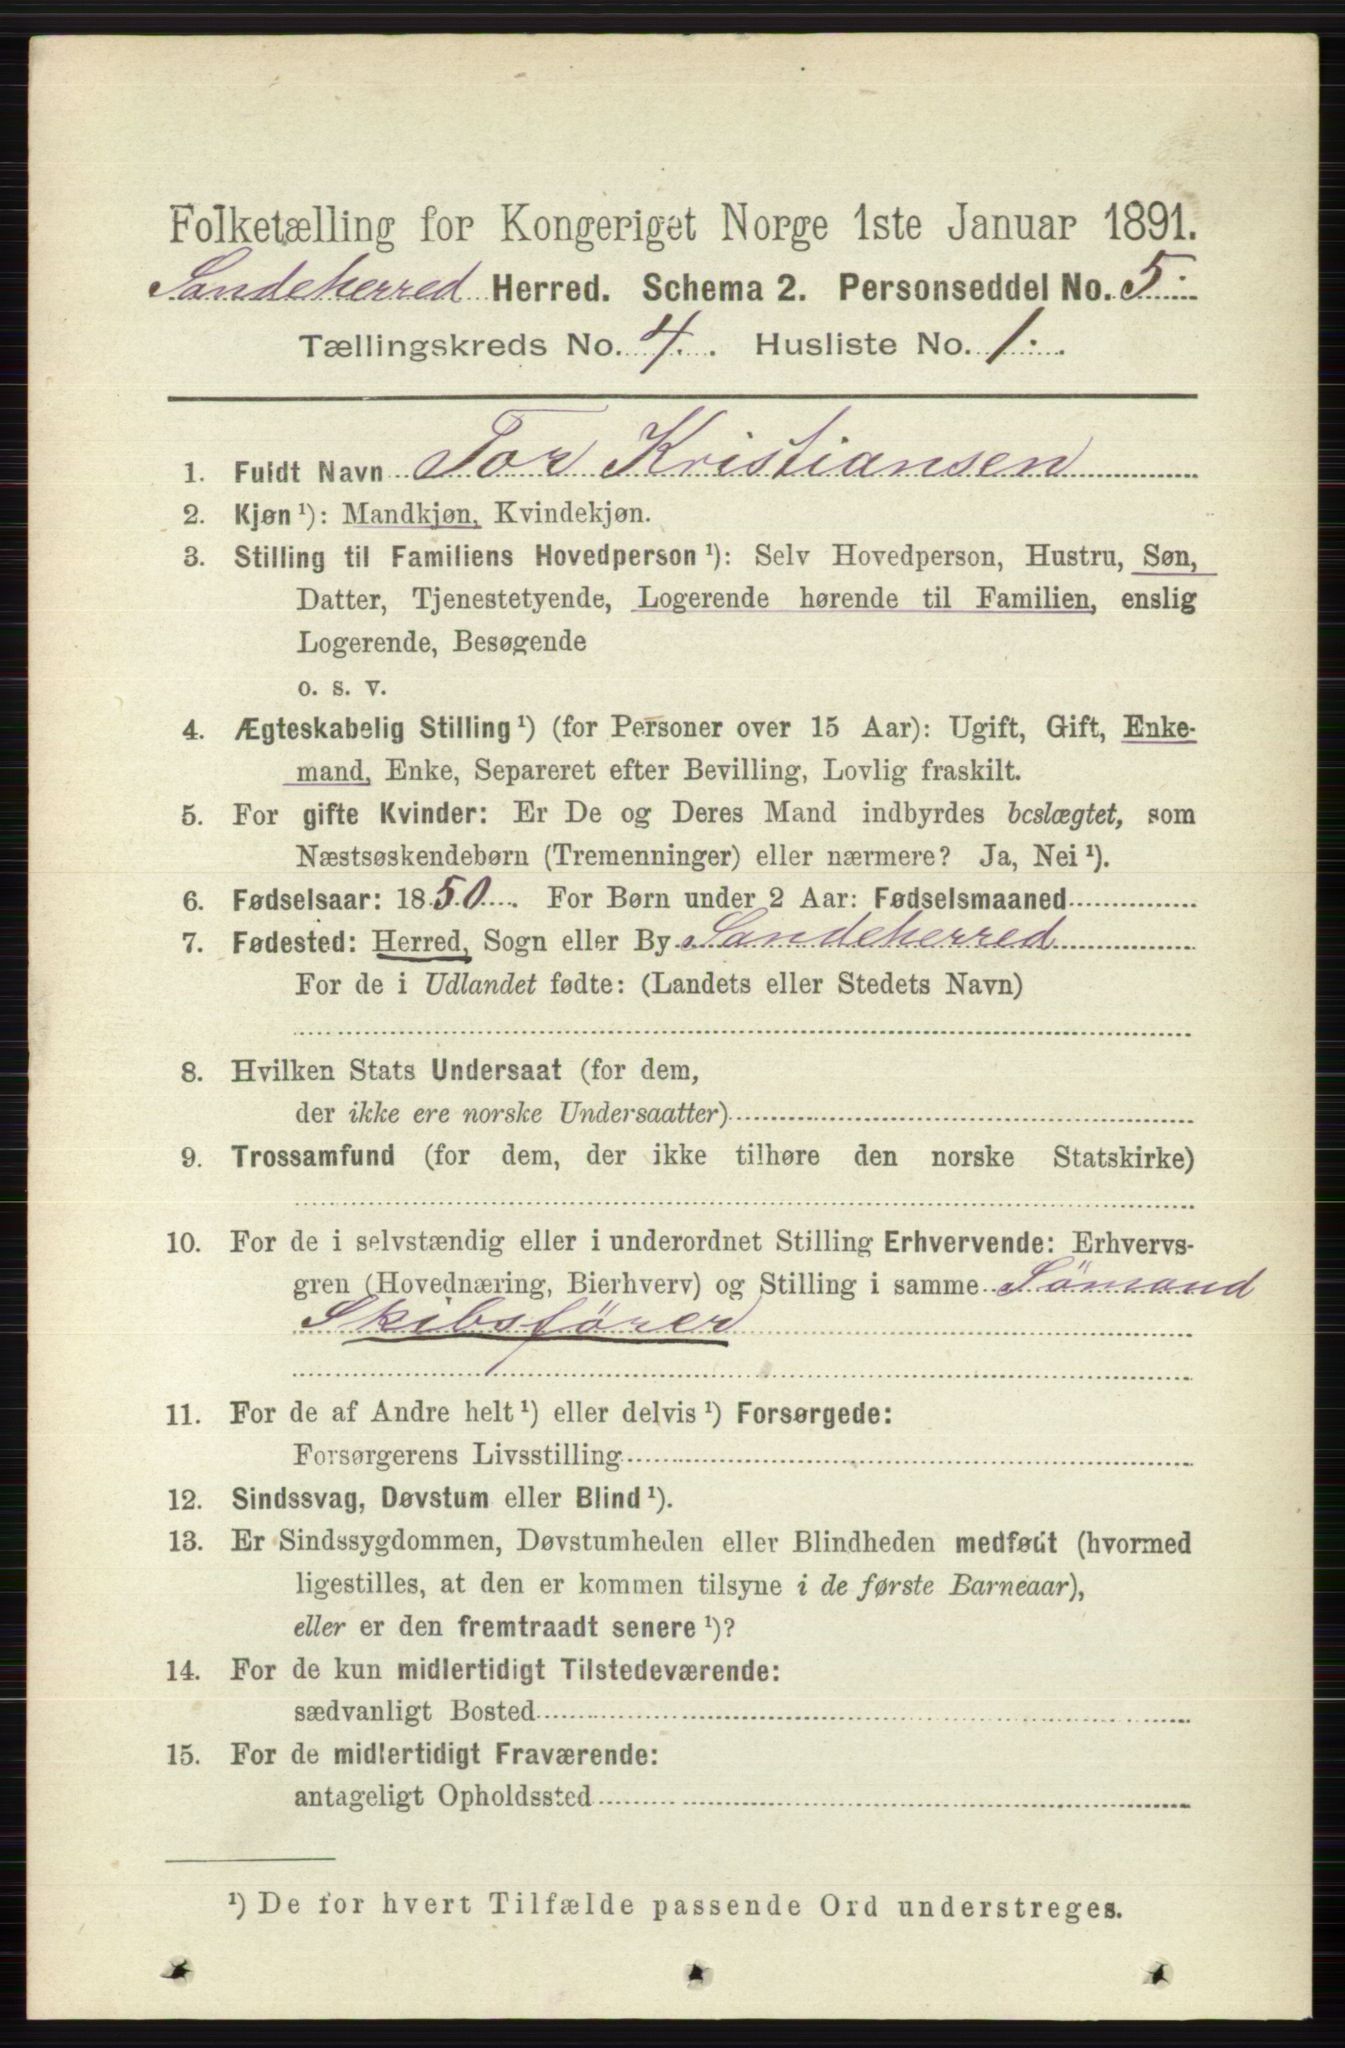 Folketælling for Kongeriget Norge 1ste Januar 1891.
Sandeherred Herred. Schema 2. Personseddel No. 5.
Tællingskreds No. 4. Husliste No. 1.
1. Fuldt Navn Tor Kristiansen
2. Kjøn ¹): Mandkjøn, Kvindekjøn.
3. Stilling til Familiens Hovedperson ¹): Selv Hovedperson, Hustru, Søn,
Datter, Tjenestetyende, Logerende hørende til Familien, enslig
Logerende, Besøgende
o. s. v.
4. Ægteskabelig Stilling ¹) (for Personer over 15 Aar): Ugift, Gift, Enke-
mand, Enke, Separeret efter Bevilling, Lovlig fraskilt.
5. For gifte Kvinder: Er De og Deres Mand indbyrdes beslægtet, som
Næstsøskendebørn (Tremenninger) eller nærmere? Ja, Nei ¹).
6. Fødselsaar: 1850. For Børn under 2 Aar: Fødselsmaaned
7. Fødested: Herred, Sogn eller By Sandeherred
For de i Udlandet fødte: (Landets eller Stedets Navn)
8. Hvilken Stats Undersaat (for dem,
der ikke ere norske Undersaatter)
9. Trossamfund (for dem, der ikke tilhøre den norske Statskirke)
10. For de i selvstændig eller i underordnet Stilling Erhvervende: Erhvervs-
gren (Hovednæring, Bierhverv) og Stilling i samme Sömand
Skibsförer
11. For de af Andre helt ¹) eller delvis ¹) Forsørgede:
Forsørgerens Livsstilling
12. Sindssvag, Døvstum eller Blind ¹).
13. Er Sindssygdommen, Døvstumheden eller Blindheden medfødt (hvormed
ligestilles, at den er kommen tilsyne i de første Barneaar),
eller er den fremtraadt senere ¹)?
14. For de kun midlertidigt Tilstedeværende:
sædvanligt Bosted
15. For de midlertidigt Fraværende:
antageligt Opholdssted
¹) De for hvert Tilfælde passende Ord understreges.